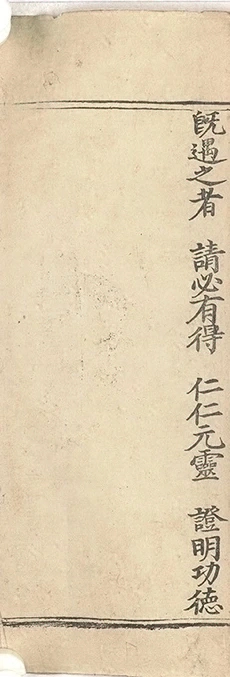 既遇之者 請必有得 仁仁元靈 證明功徳